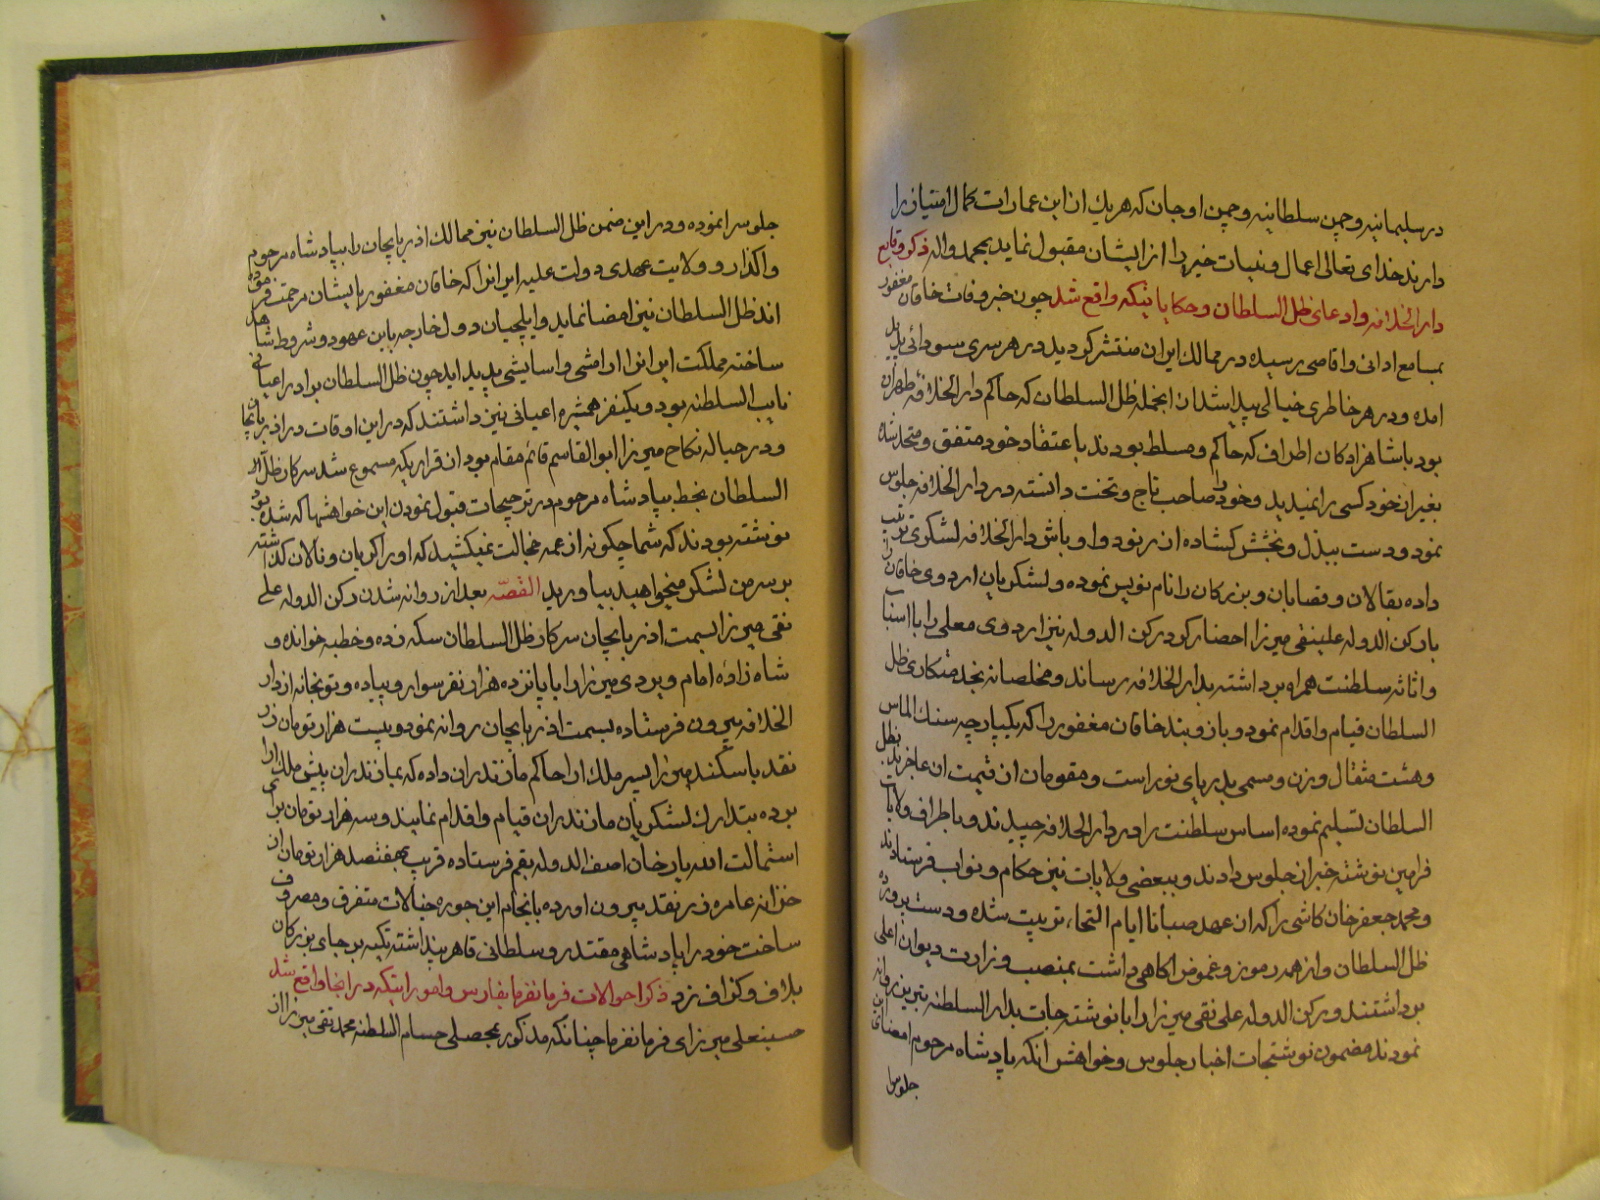 در سلیمانیه و چمن سلطانیه و چمن اوجان که هریک ازین عمارات کمال امتیاز را
دارند خدای تعالی اعمال و نیات خیر را از ایشان مقبول نماید بمحمد واله ذکر وقایع
دار الخلافه و ادعای ظل السلطان و حکایاتیکه واقع شد چون خبر وفات خاقان مغفور
بمسامع ادانی و اقاصی رسیده در ممالک ایران منتشر کردید در هر سری سودائی پدید
امده و در هر خاطری خیالی پیدا شد از انجمله ظل السلطان که حاکم دار الخلافه طهران
بود با شاهزادکان اطراف که حاکم و مسلط بودند باعتقاد خود متفق و متحد شده
بغیر از خود کسی را نمیدید و خود را صاحب تاج و تخت دانسته در دار الخلافه جلوس
نمود و دست ببذل و بخشش کشاده از رنود و اوباش دار الخلافه لشکری ترتیب
داده بقالان و قصابان و بزرکان را نام نویس نموده و لشکریان اردوی خاقان را
با رکن الدوله علینقی میرزا احضار کرد رکن الدوله نیز اردوی معلی را با اسباب
و اثاثه سلطنت همراه برداشته بدار الخلافه رساند و مخلصانه بخدمتکاری ظل
السلطان قیام و اقدام نمود و بازوبند خاقان مغفور را که یکپارچه سنک الماس
و هشت مثقال وزن و مسمی بدریای نور است و مقومان از قیمت ان عاجزند بظل
السلطان تسلیم نموده اساس سلطنت را در دار الخلافه چیدند و باطراف ولایات
فرامین نوشته خبر از جلوس دادند و ببعضی ولایات نیز حکام و نواب فرستادند
و محمد جعفر خان کاشی را که از عهد صبا تا ایام التحا، تربیت شده و دست پرورده
ظل السلطان و از همه رموز و غموض اکاهی داشت بمنصب وزارت دیوان اعلی
برداشتند و رکن الدوله علی نقی میرزا را با نوشته جات بدار السلطنه تبریز روانه
نمودند مضمون نوشتجات اخبار جلوس و خواهش انکه پادشاه مرحوم امضای این
جلوس را
جلوس را نموده و در این ضمن ظل السلطان نیز ممالک اذربایجان را بپادشاه مرحوم
واکذارد و ولایت عهدی دولت علیه ایران را که خاقان مغفور بایشان مرحمت فرموده
اند ظل السلطان نیز امضا نماید و ایلچیان دول خارجه باین عهود و شروط شاهد
ساخته مملکت ایران را ارامشی و اسایشی پدید اید چون ظل السلطان برادر اعیانی
نایب السلطنه بود و یکنفر همشیره اعیانی نیز داشتند که در این اوقات در اذربایجان
و در حباله نکاح میرزا ابوالقاسم قائم مقام بود از قراریکه مسموع شد سرکار ظل
السلطان بخط بپادشاه مرحوم در ترجیحات قبول نمودن این خواهشها که شده بود
نوشته بودند که شما چکونه از عمه خجالت نمیکشید که او را کریان و نالان کذاشته
بر سر من لشکر میخواهید بیاورید القصّه بعد از روانه شدن رکن الدوله علی
نقی میرزا بسمت اذربایجان سرکار ظل السلطان سکه زده و خطبه خوانده و
شاهزاده امام ویردی میرزا را با پانزده هزار نفر سوار و پیاده و توپخانه از دار
الخلافه بیرون فرستاده بسمت اذربایجان روانه نمود و بیست هزار تومان زر
نقد باسکندر میرزا پسر ملک ارا حاکم مازندران داده که بمازندران پیش ملک ارا
بوده بتدارک لشکریان مازندران قیام و اقدام نمایند و سه هزار تومان برای
استمالت الله یار خان اصف الدوله بقم فرستاده قریب بهفتصد هزار تومان از
خزانه عامره زر نقد بیرون اورده بانجام این جوره خیالات متفرق و مصروف
ساخت خود را پادشاهی مقتدر و سلطانی قاهر پنداشته تکیه بر جای بزرکان
بلاف و کزاف زد ذکر احوالات فرمانفرما بفارس و اموراتیکه در انجا واقع شد
حسینعلی میرزای فرمانفرما چنانکه مذکور بمحصلی حسام السلطنه محمد تقی میرزا از